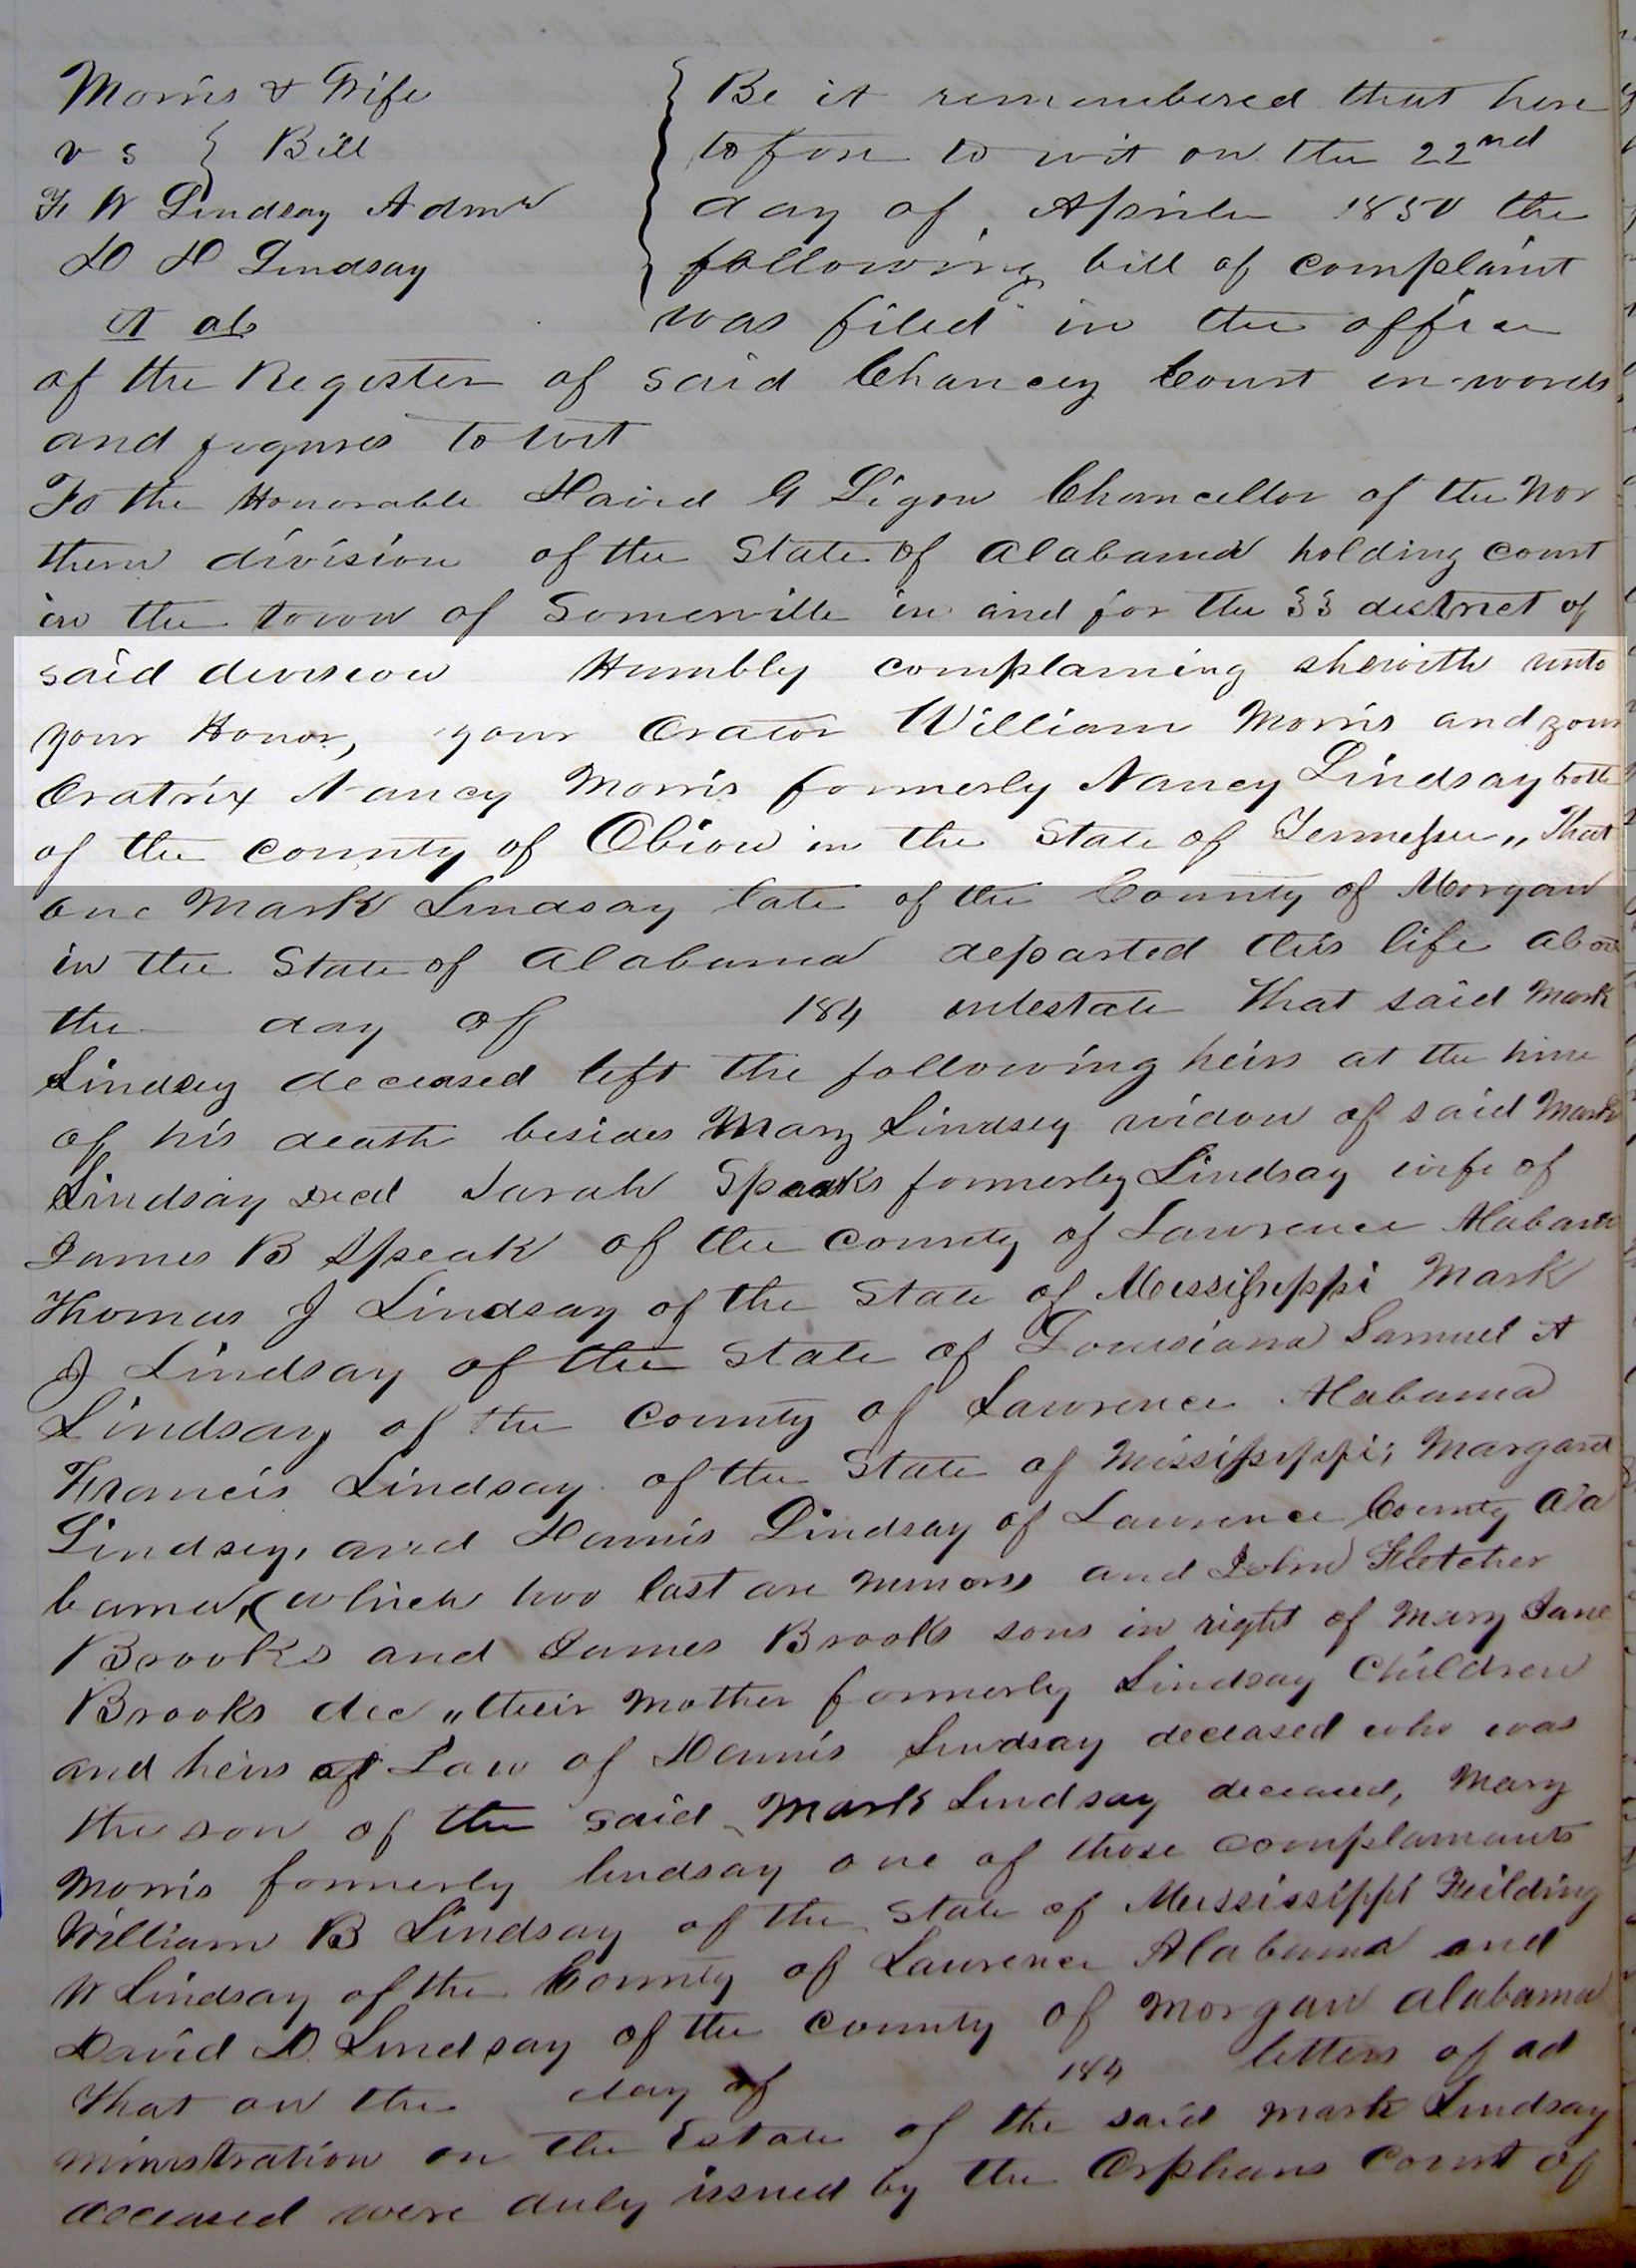 Morris & Wife
v s } Bill
F W Lindsay Admr
D D Lindsay
et als
Be it remembered that here
tofore to wit on the 22nd
day of Aprile 1850 the
following bill of complaint
was filed in the office
of the Register of said Chancey Court in words
and figures to wit
To the Honorable David G Ligon Chancellor of the Nor
thern division of the State of Alabama holding court
in the town of Somerville in and for the 33 district of
said division Humbly complaining shewith unto
your Honor, your Orator William Morris and your
Oratrix Nancy Morris formerly Nancy Lindsay both
of the county of Obion in the State of Tennessee „ That
one Mark Lindsay late of the County of Morgan
in the State of Alabama departed this life about
the day of 184 intestate That said Mark
Lindsey deceased left the following heirs at the time
of his death besides Mary Lindsey widow of said Mark
Lindsay Decd Sarah Speaks formerley Lindsay wife of
James B Speak of the county of Lawrence Alabama
Thomas J Lindsay of the State of Mississippi Mark
J Lindsay of the State of Louisiana Samuel A
Lindsay of the County of Lawrence Alabama
Francis Lindsay of the State of Mississippi; Margaret
Lindsey, and Dennis Lindsay of Lawrence County Ala
bama, (which two last are minors and John Fletcher
Brooks and James Brooks sons in right of Mary Jane
Brooks dec „ their Mother formerly Lindsay Children
and heirs at Law of Dennis Lindsay deceased who was
the son of the said Mark Lindsay deceased, Mary
Morris formerly lindsay one of those complamants
William B Lindsay of the State of Mississippi Feilding
W Lindsay of the County of Lawrence Alabama and
David D. Lindsay of the county of Morgan Alabama
That on the day of 184 letters of ad
ministration on the Estate of the said Mark Lindsay
deceased were duly issued by the Orphans Court of